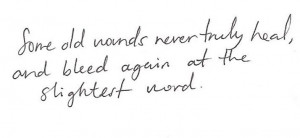 Some old wounds never truly heal,
and bleed again at the
slightest word.